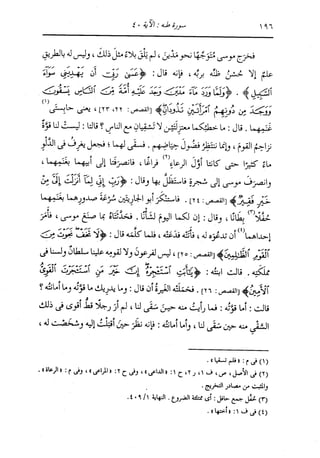 ١٩٦ سورة طه : الآية ٤٠
فخرج موسى متوجِّهًا نحوَ مَدْيَنَ ، لم يَلْقَ بلاءً مثلَ ذلك ، وليس له بالطريقِ
علمٌ إلا حُسْنُ ظنِّه بربِّه ، فإنه قال : ﴿عَسَىٰ رَبِّي أَن يَهْدِيَنِي سَوَاءَ
السَّبِيلِ﴾ . ﴿وَلَمَّا وَرَدَ مَاءَ مَدْيَنَ وَجَدَ عَلَيْهِ أُمَّةً مِّنَ النَّاسِ يَسْقُونَ
وَوَجَدَ مِن دُونِهِمُ امْرَأَتَيْنِ تَذُودَانِ﴾ [القصص : ٢٢، ٢٣] ، يعنى حابِسَتَيْ
غَنَمِهما . قال : ما خَطْبُكما معتزلتين لا تَسْقيان مع الناسِ؟ قالتا : ليست لنا قوَّةٌ
نُزاحِمُ القومَ ، وإنما نَنتظرُ فُضولَ حِياضِهم . فسقَى لهما ؛ فجعل يَغرِفُ في الدَّلْوِ
ماءً كثيرًا حتى كانتا أوّلَ الرِّعاءِ (٢) فراغًا ، فانصرَفَتا إلى أبيهما بغنمِهما ،
وانصرف موسى إلى شجرةٍ فاستَظلَّ بها وقال : ﴿رَبِّ إِنِّي لِمَا أَنزَلْتَ إِلَيَّ مِنْ
خَيْرٍ فَقِيرٌ﴾ [القصص : ٢٤] . فاستنكَر أبو الجاريتَين سُرْعةَ صدورِهما بغنمِهما
حُفَّلًا (٣) بِطانًا ، وقال : إن لكما اليومَ لشأْنًا . فحدَّثَتاه بما صنَع موسى ، فأمَر
إحداهما (٤) أن تَدْعُوَه له ، فأتَتْه فدعَتْه ، فلما كلَّمه قال : ﴿لَا تَخَفْ نَجَوْتَ مِنَ
الْقَوْمِ الظَّالِمِينَ﴾ [القصص : ٢٥] ، ليس لفرعونَ ولا لقومِه علينا سلطانٌ ولسنا في
مملكتِه . قالت ابنتُه : ﴿يَا أَبَتِ اسْتَأْجِرْهُ إِنَّ خَيْرَ مَنِ اسْتَأْجَرْتَ الْقَوِيُّ
الْأَمِينُ﴾ [القصص : ٢٦] . فحملته الغَيْرةُ أن قال : وما يدريكِ ما قوَّتُه وما أمانتُه ؟
قالت : أما قوَّتُه : فما رأيتُ منه حينَ سقَى لنا ، لم أرَ رجلًا قطُّ أقوى في ذلك
السَّقْيِ منه حين سقَى لنا ، وأما أمانتُه : فإنه نظَر حين أقبلتُ إليه وشَخَصْتُ له ،
(١) في م : « فلم تسقيا » .
(٢) في الأصل ، ص ، ف ١، ر ٢، ح ١: « الداعى » ، وفى ح ٢: « المراعى » ، وفى م : « الرعاة » .
والمثبت من مصادر التخريج .
(٣) حُفَّل جمع حافل : أى ممتلئة الضروع . النهاية ١/ ٤٠٩.
(٤) في ف ١: « أختها » .